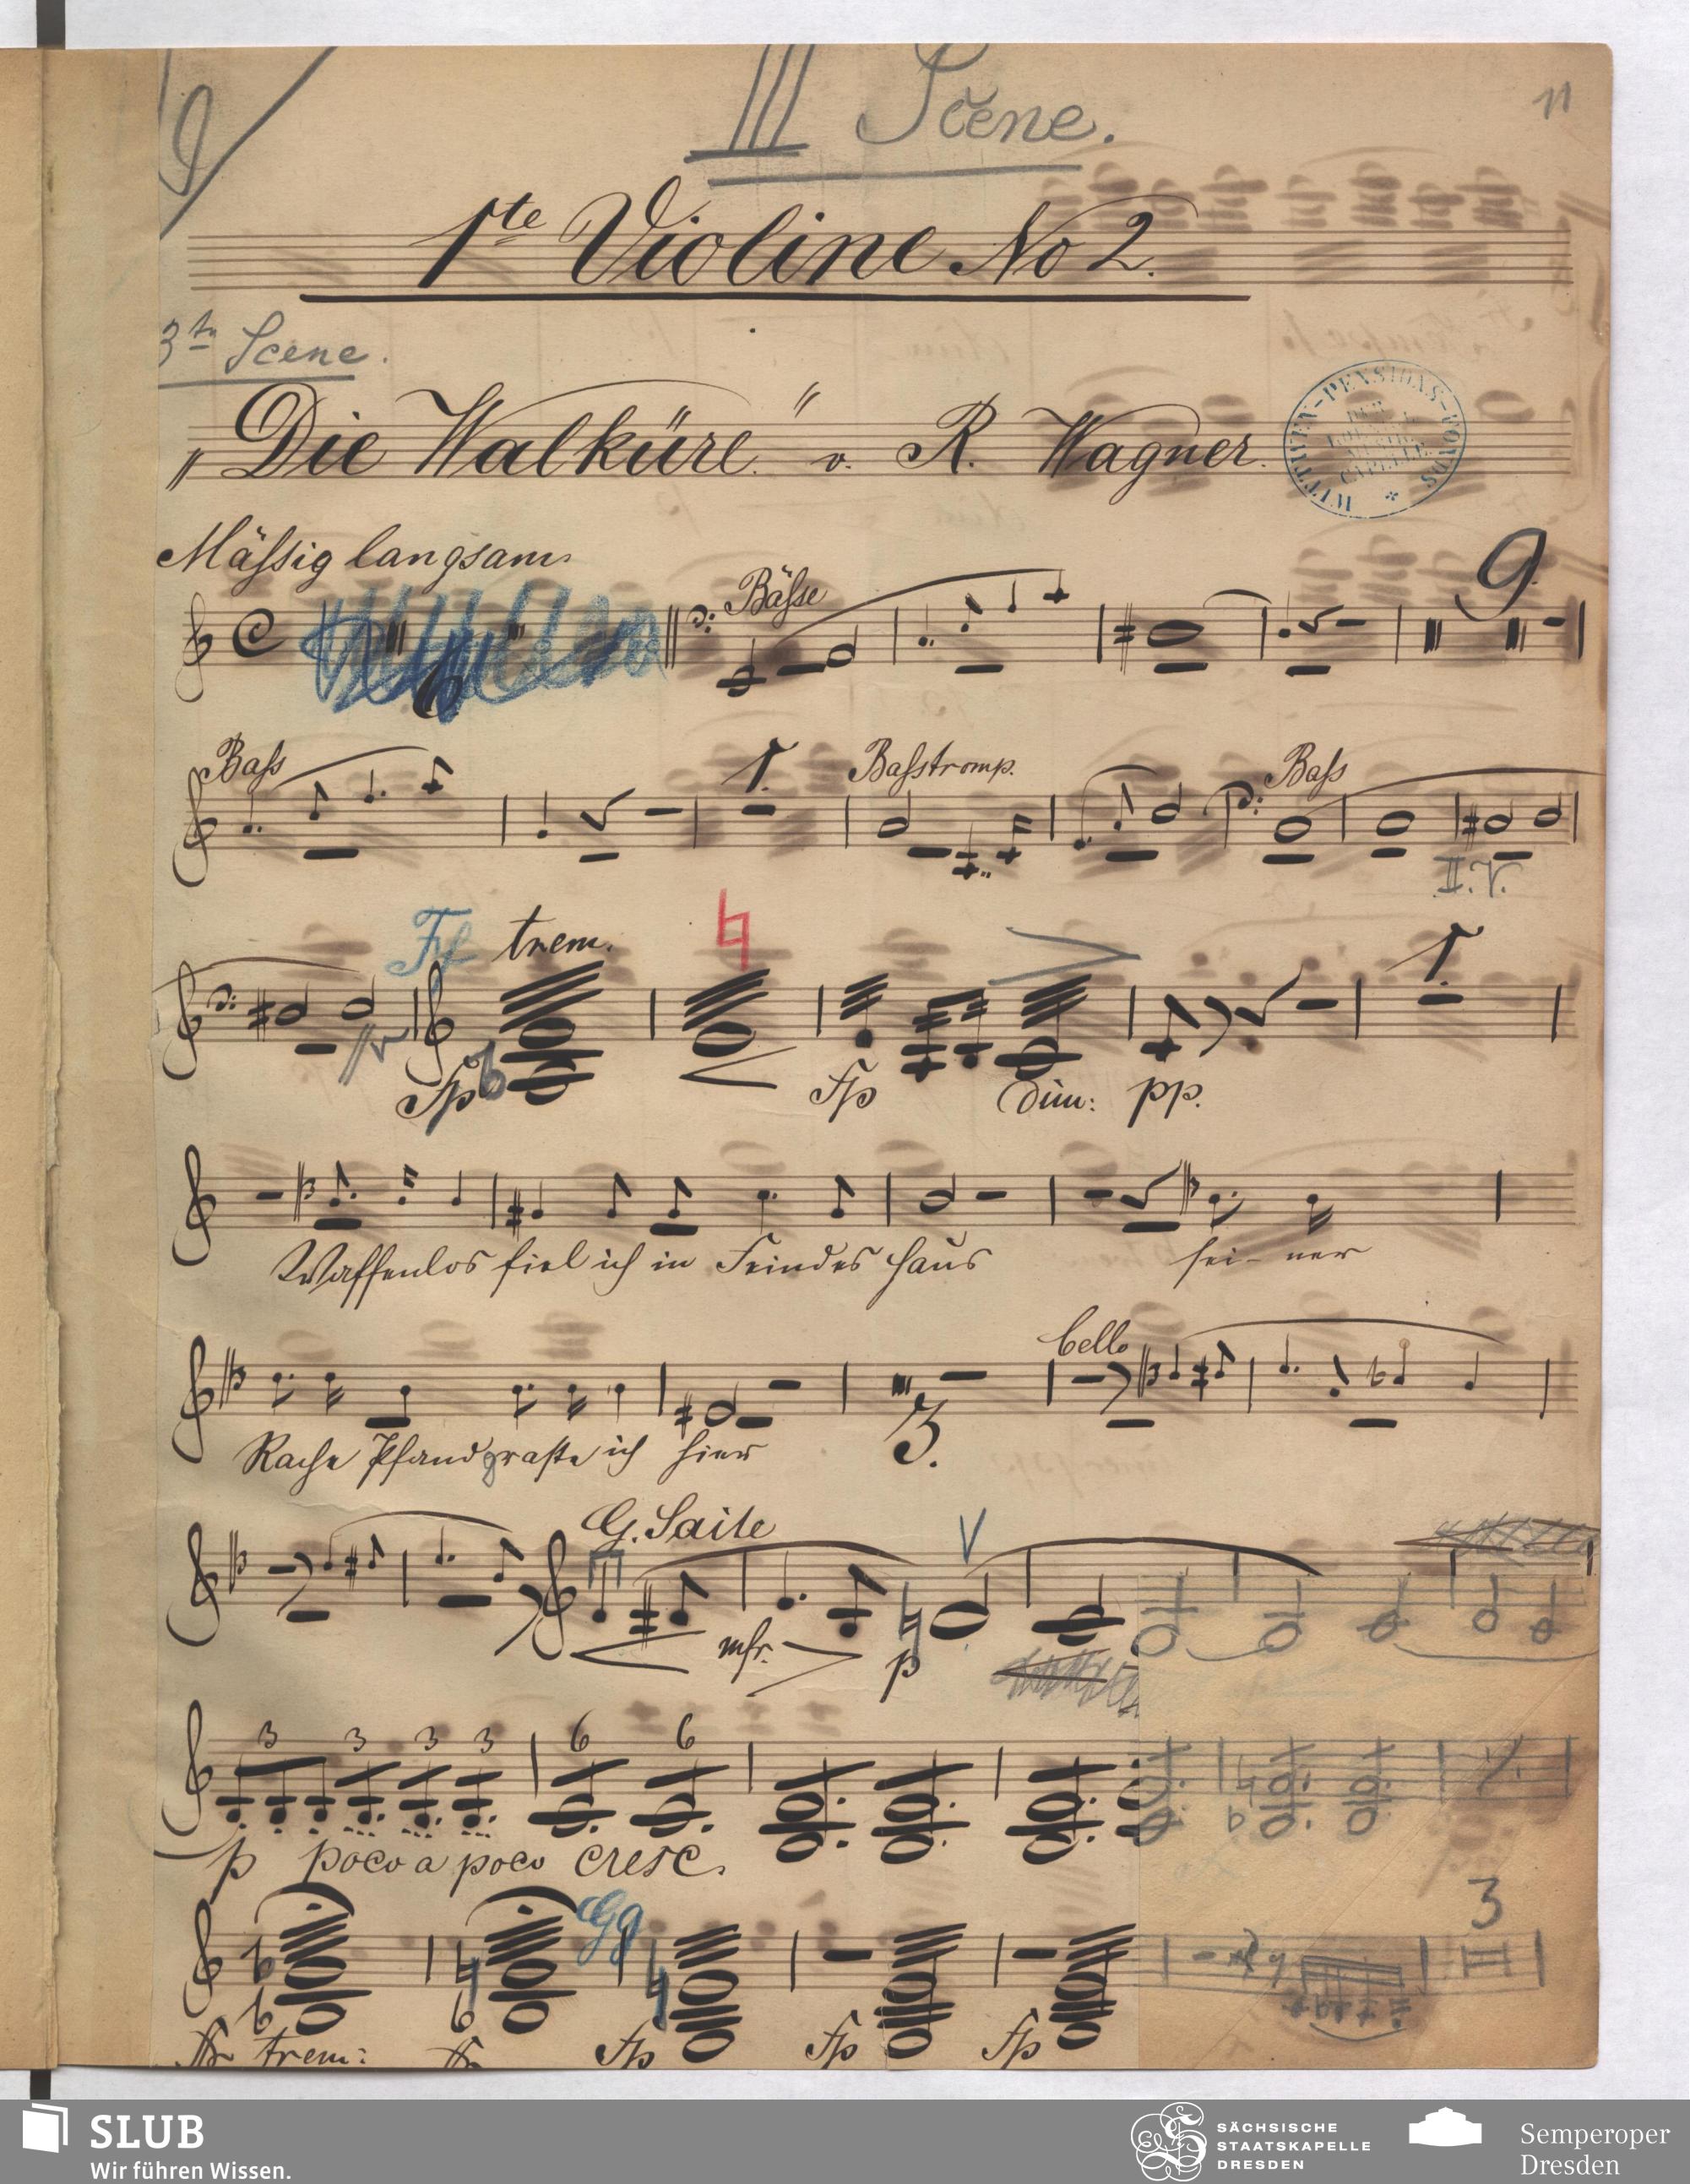 III Scene.
11
1te Violine No 2.
3te Scene.
„Die Walküre." v. R. Wagner.
WITTWEN-PENSIONS-FONDS
DER
CAPELLE
Mässig langsam.
Bässe
9.
6
Bass
1.
Basstromp.
Bass
II. V.
Ff
trem.
1.
fp
fp
dim: pp.
Waffenlos fiel ich in Feindes Haus
sei- ner
Cello
Rache Pfand raste ich hier
3.
G. Saite
V
mf
p
3 3 3 3 6 6
p poco a poco cresc.
Gg
3
trem:
fp
fp
fp
SLUB
Wir führen Wissen.
SÄCHSISCHE
STAATSKAPELLE
DRESDEN
Semperoper
Dresden